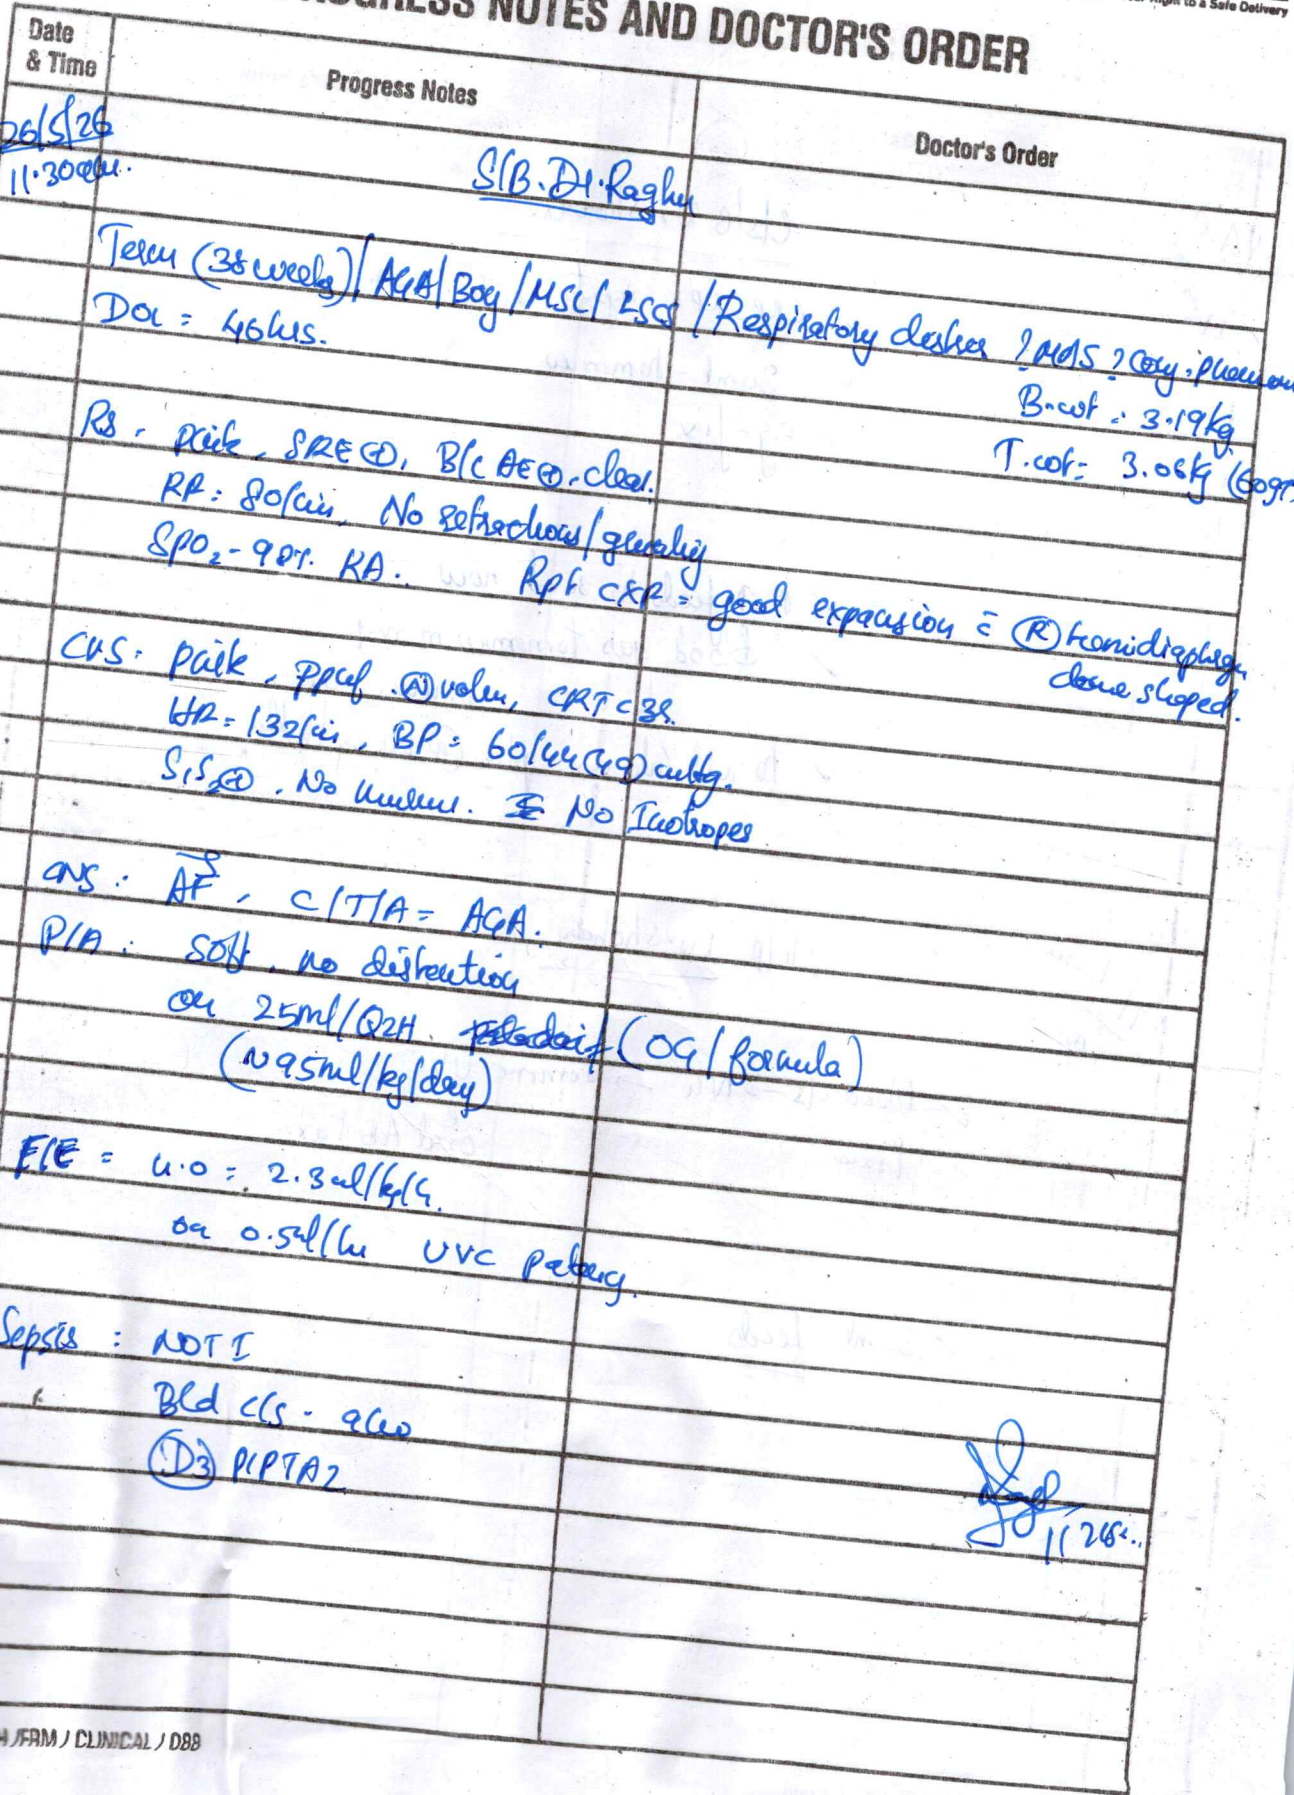 PROGRESS NOTES AND DOCTOR'S ORDER
Right to a Safe Delivery
Date & Time
Progress Notes
Doctor's Order
26/5/26
11.30am.
S/B. Dr. Raghu
Term (38 weeks) / AGA / Boy / MSL / LSCS / Respiratory distress ? MAS ? Cong. pneumon
DOL = 46hrs.
B.wt = 3.19kg
T.wt = 3.06kg (60gr
RS - pink, SRE ⊕, B/L AE ⊕, clear.
RR = 80/min, No retractions / grunting
SPO2 - 98%. RA. Rpt CXR = good expansion c̄ Ⓡ hemidiaphragm
dome shaped.
CVS: pink, ppwf. Ⓝ volm, CRT < 3s.
HR = 132/min, BP = 60/44 (49) mmHg.
S1S2 ⊕. No murmur. No Inotropes
CNS: AF, C/T/A = AGA.
P/A: soft, no distention
on 25ml/Q2H. (OG / formula)
(~95ml/kg/day)
F/E = u.o = 2.3ml/kg/h.
on 0.5ml/hr UVC patency.
Sepsis: NOTI
Bld c/s -
D3 PIPTAZ
/FRM / CLINICAL / D88